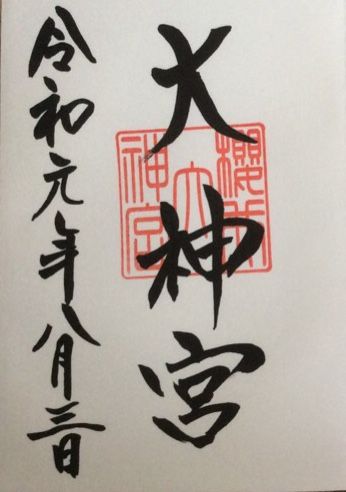 大神宮
櫻岡
大
神宮
令和元年八月三日